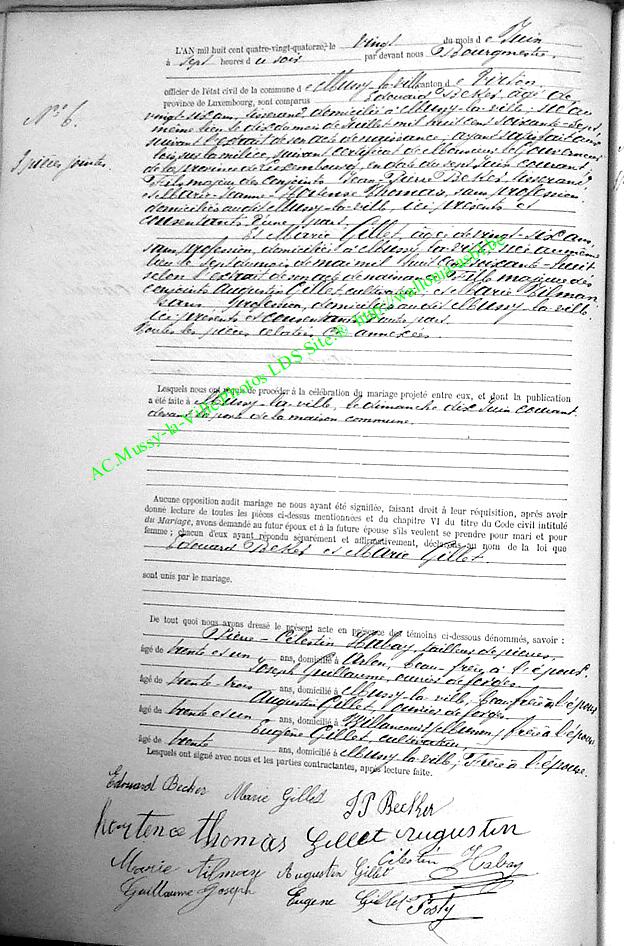 L'AN mil huit cent quatre-vingt-quatorze, le vingt du mois de Juin
à sept heures du soir par devant nous Bourgmestre
officier de l'état civil de la commune de Mussy-la-ville canton de Virton
province de Luxembourg, sont comparus Edouard Becker, âgé de
N° 6.
vingt six ans, tisserand, domicilié à Mussy-la-ville, né au
même lieu le dix du mois de Juillet mil huit cent soixante-sept,
suivant l'extrait de son acte de naissance; ayant satisfait aux
lois sur la milice, suivant certificat de Monsieur le Gouverneur
5 pièces jointes.
de la province de Luxembourg, en date du sept Juin courant,
fils majeur des conjoints Jean-Pierre Becker, tisserand
et Marie-Jeanne-Hortense Thomas, sans profession
domiciliés audit Mussy-la-ville, ici présents et
consentants, d'une part.
Et Marie Gillet, âgée de vingt-six ans,
sans profession, domiciliée à Mussy-la-ville, née au même
lieu le sept du mois de mai mil huit cent soixante-huit
selon l'extrait de son acte de naissance, fille majeure des
conjoints Augustin Gillet, cultivateur et Marie Tilman,
sans profession, domiciliés audit Mussy-la-ville
ici présents et consentants, d'autre part.
Toutes les pièces relatées annexées.
AC.Mussy-la-ville.Photos LDS Site.® http://wallonia-asbl.be
Lesquels nous ont requis de procéder à la célébration du mariage projeté entre eux, et dont la publication
a été faite à Mussy-la-ville, le dimanche dix Juin courant.
devant la porte de la maison commune.
Aucune opposition audit mariage ne nous ayant été signifiée, faisant droit à leur réquisition, après avoir
donné lecture de toutes les pièces ci-dessus mentionnées et du chapitre VI du titre du Code civil intitulé
du Mariage, avons demandé au futur époux et à la future épouse s'ils veulent se prendre pour mari et pour
femme ; chacun d'eux ayant répondu séparément et affirmativement, déclarons au nom de la loi que
Edouard Becker et Marie Gillet
sont unis par le mariage.
De tout quoi nous avons dressé le présent acte en présence des témoins ci-dessous dénommés, savoir :
Pierre-Célestin Habay, tailleur de pierres,
âgé de trente et un ans, domicilié à Arlon, beau-frère à l'époux.
Joseph Guillaume, ouvrier de forges
âgé de trente-trois ans, domicilié à Mussy-la-ville, beau-frère à l'époux
Augustin Gillet, ouvrier de forges
âgé de trente et un ans, domicilié à Villancourt, frère à l'épouse
Eugène Gillet cultivateur,
âgé de trente ans, domicilié à Mussy-la-ville, frère à l'épouse.
Lesquels ont signé avec nous et les parties contractantes, après lecture faite.
Edouard Becker Marie Gillet J P Becker
hortence thomas Gillet Augustin
Marie tilman Augustin Gillet Célestin Habay
Guillaume Joseph Eugene Gillet Posty